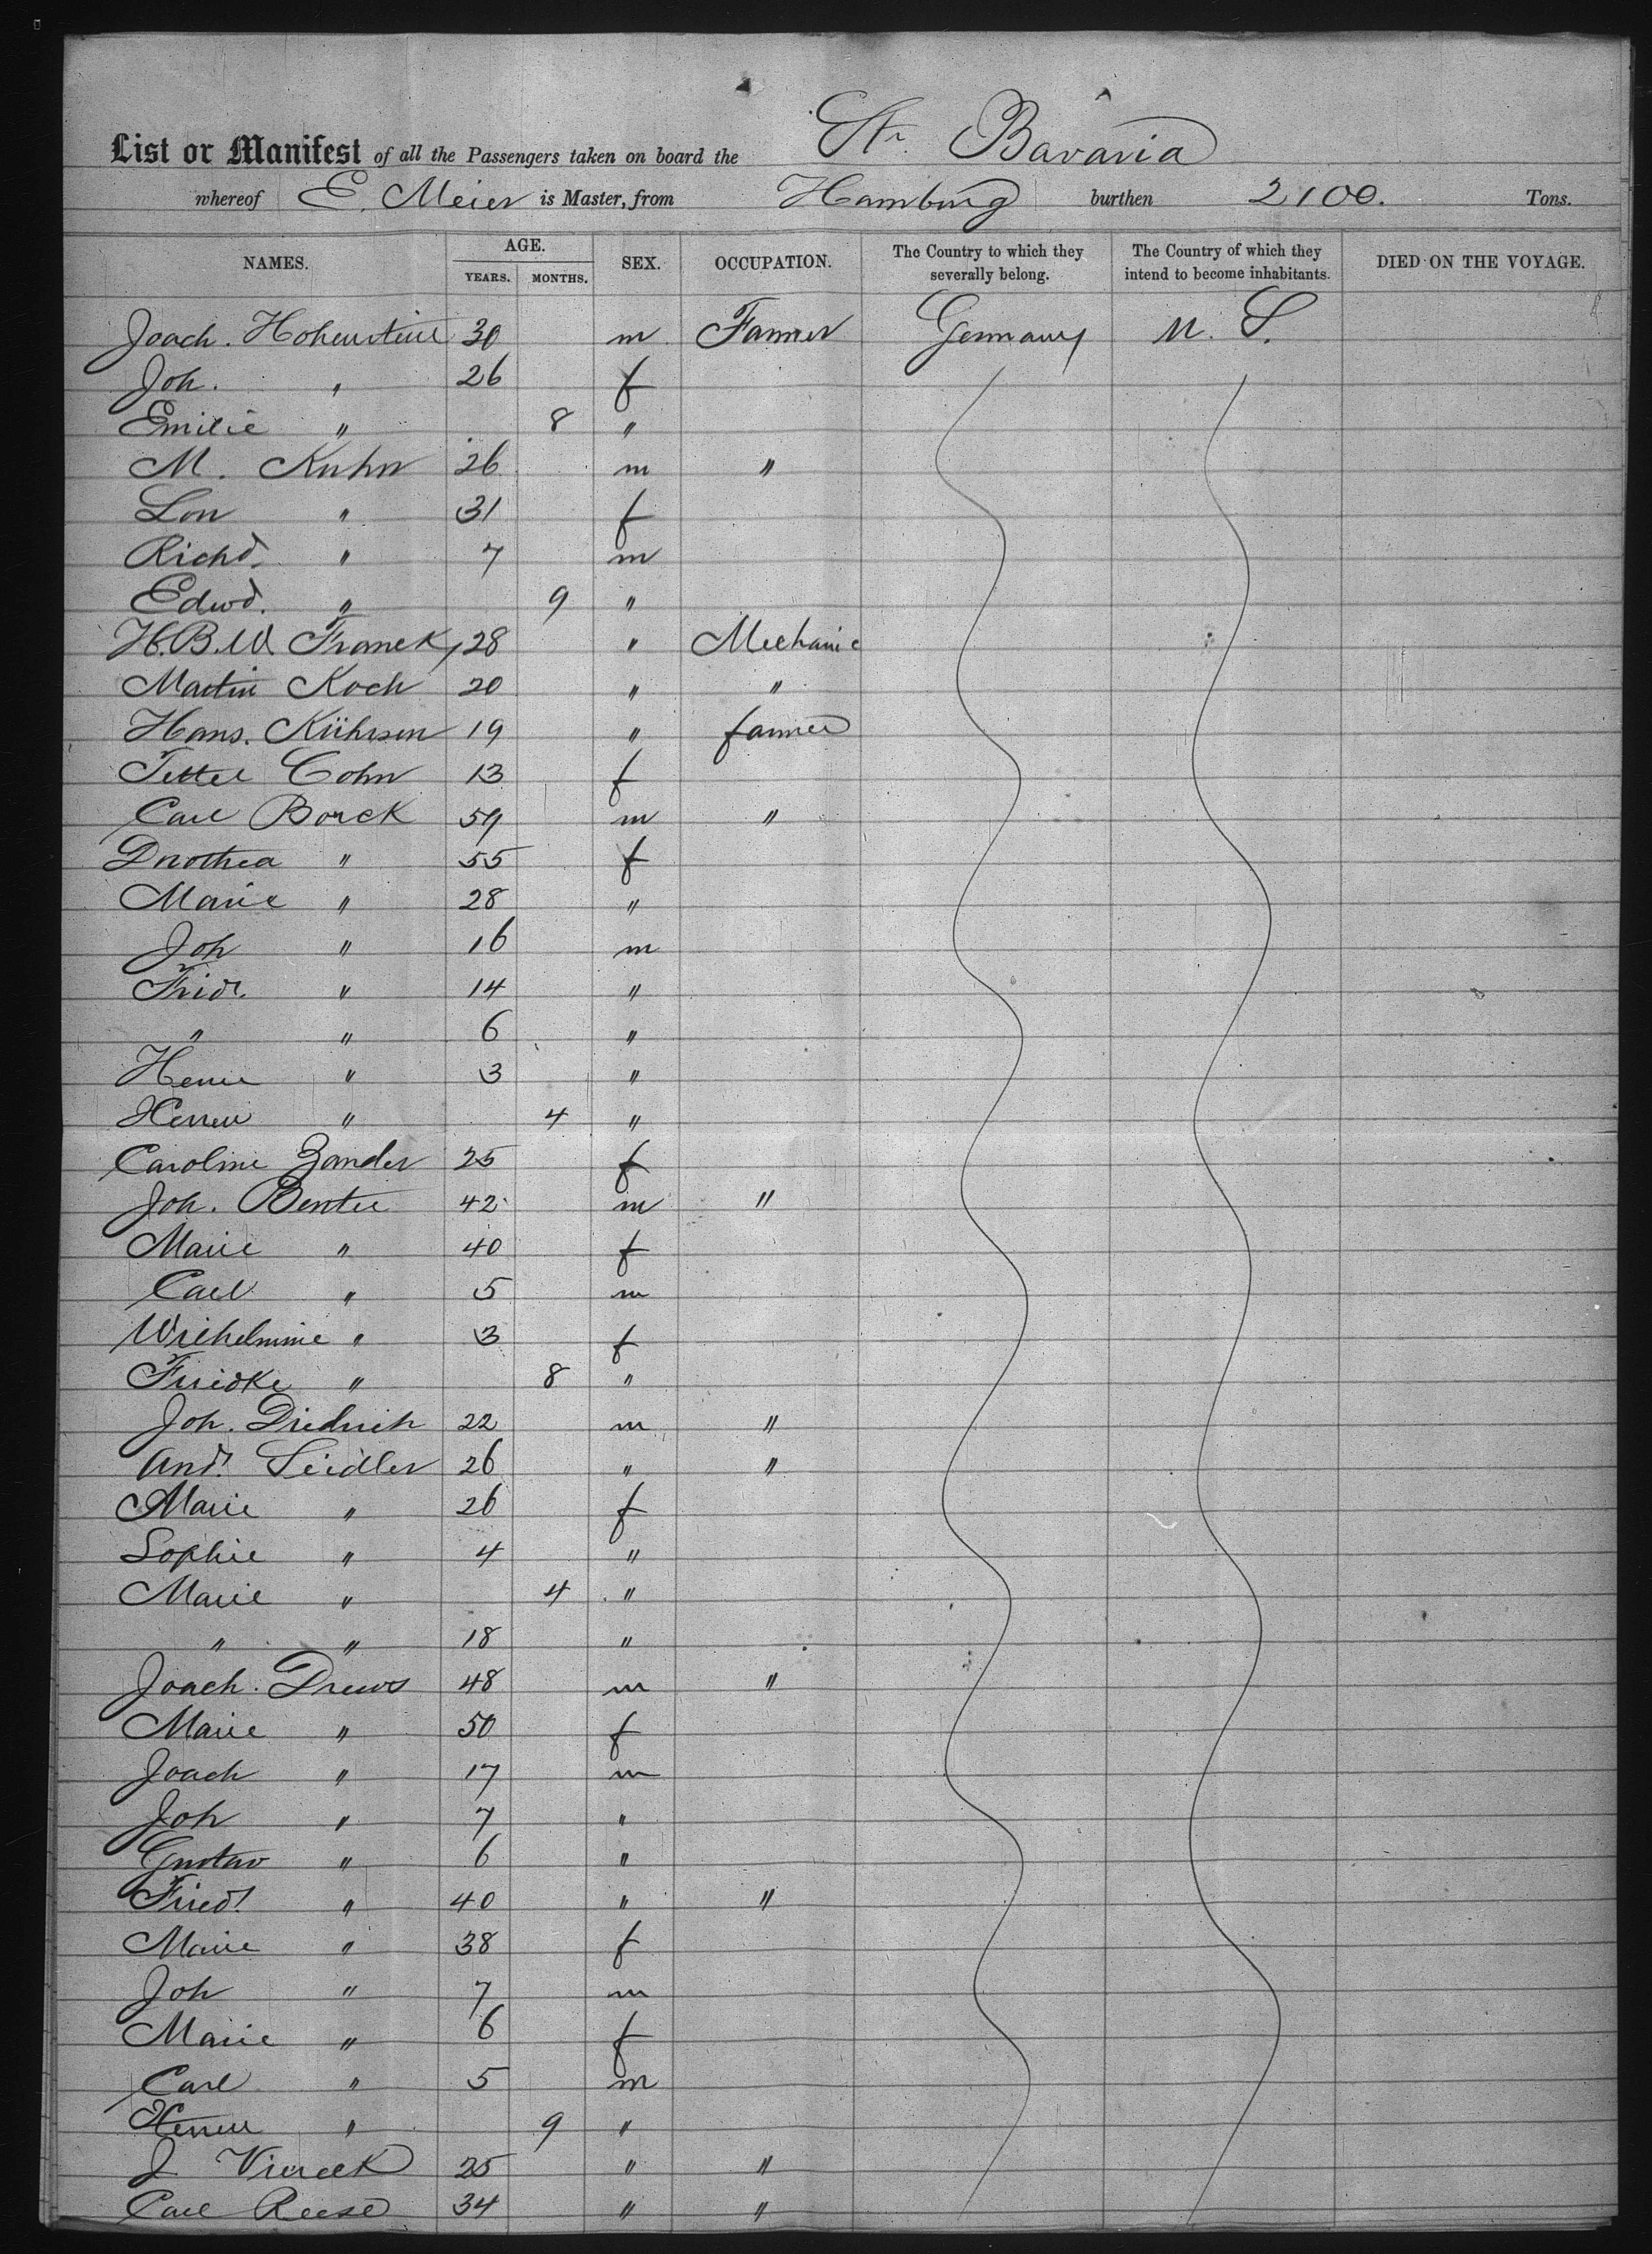 List or Manifest of all the Passengers taken on board the Str. Bavaria
whereof E. Meier is Master, from Hamburg burthen 2100. Tons.
NAMES. AGE. YEARS. MONTHS. SEX. OCCUPATION. The Country to which they severally belong. The Country of which they intend to become inhabitants. DIED ON THE VOYAGE.
Joach. 30 m Farmer Germany U. S.
Joh. " 26 f
Emilie " 8 "
M. Kuhn 26 m "
Lou " 31 f
Richd. " 7 m
Edwd. " 9 "
H.B.W. Franck 28 " Mechanic
Martin Koch 20 " "
Hans. Kührsen 19 " farmer
Cohn 13 f
Carl Borck 59 m "
Dorothea " 55 f
Marie " 28 "
Joh " 16 m
Fridr. " 14 "
" " 6 "
" 3 "
" 4 "
Caroline Zander 25 f
Joh. 42 m "
Marie " 40 f
Carl " 5 m
Wilhelmine " 3 f
Friedke " 8 "
Joh. Diedrich 22 m "
And. Seidler 26 " "
Marie " 26 f
Sophie " 4 "
Marie " 4 "
" " 18 "
Joach. Drews 48 m "
Marie " 50 f
Joach " 17 m
Joh " 7 "
Gustav " 6 "
Fried. " 40 " "
Marie " 38 f
Joh " 7 m
Marie " 6 f
Carl " 5 m
" 9 "
J. Viereck 25 " "
Carl Reese 34 " "